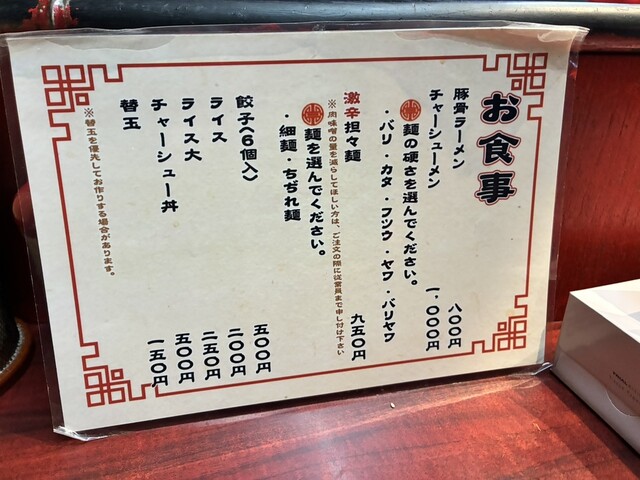 お食事
豚骨ラーメン 八〇〇円
チャーシューメン 一、〇〇〇円
麺の硬さを選んでください。
・バリ・カタ・フツウ・ヤワ・バリヤワ
激辛担々麺 九五〇円
※肉味噌の量を減らしてほしい方は、ご注文の際に従業員まで申し付け下さい
麺を選んでください。
・細麺・ちぢれ麺
餃子（6個入） 五〇〇円
ライス 二〇〇円
ライス大 二五〇円
チャーシュー丼 五〇〇円
替玉 一五〇円
※替玉を優先してお作りする場合があります。